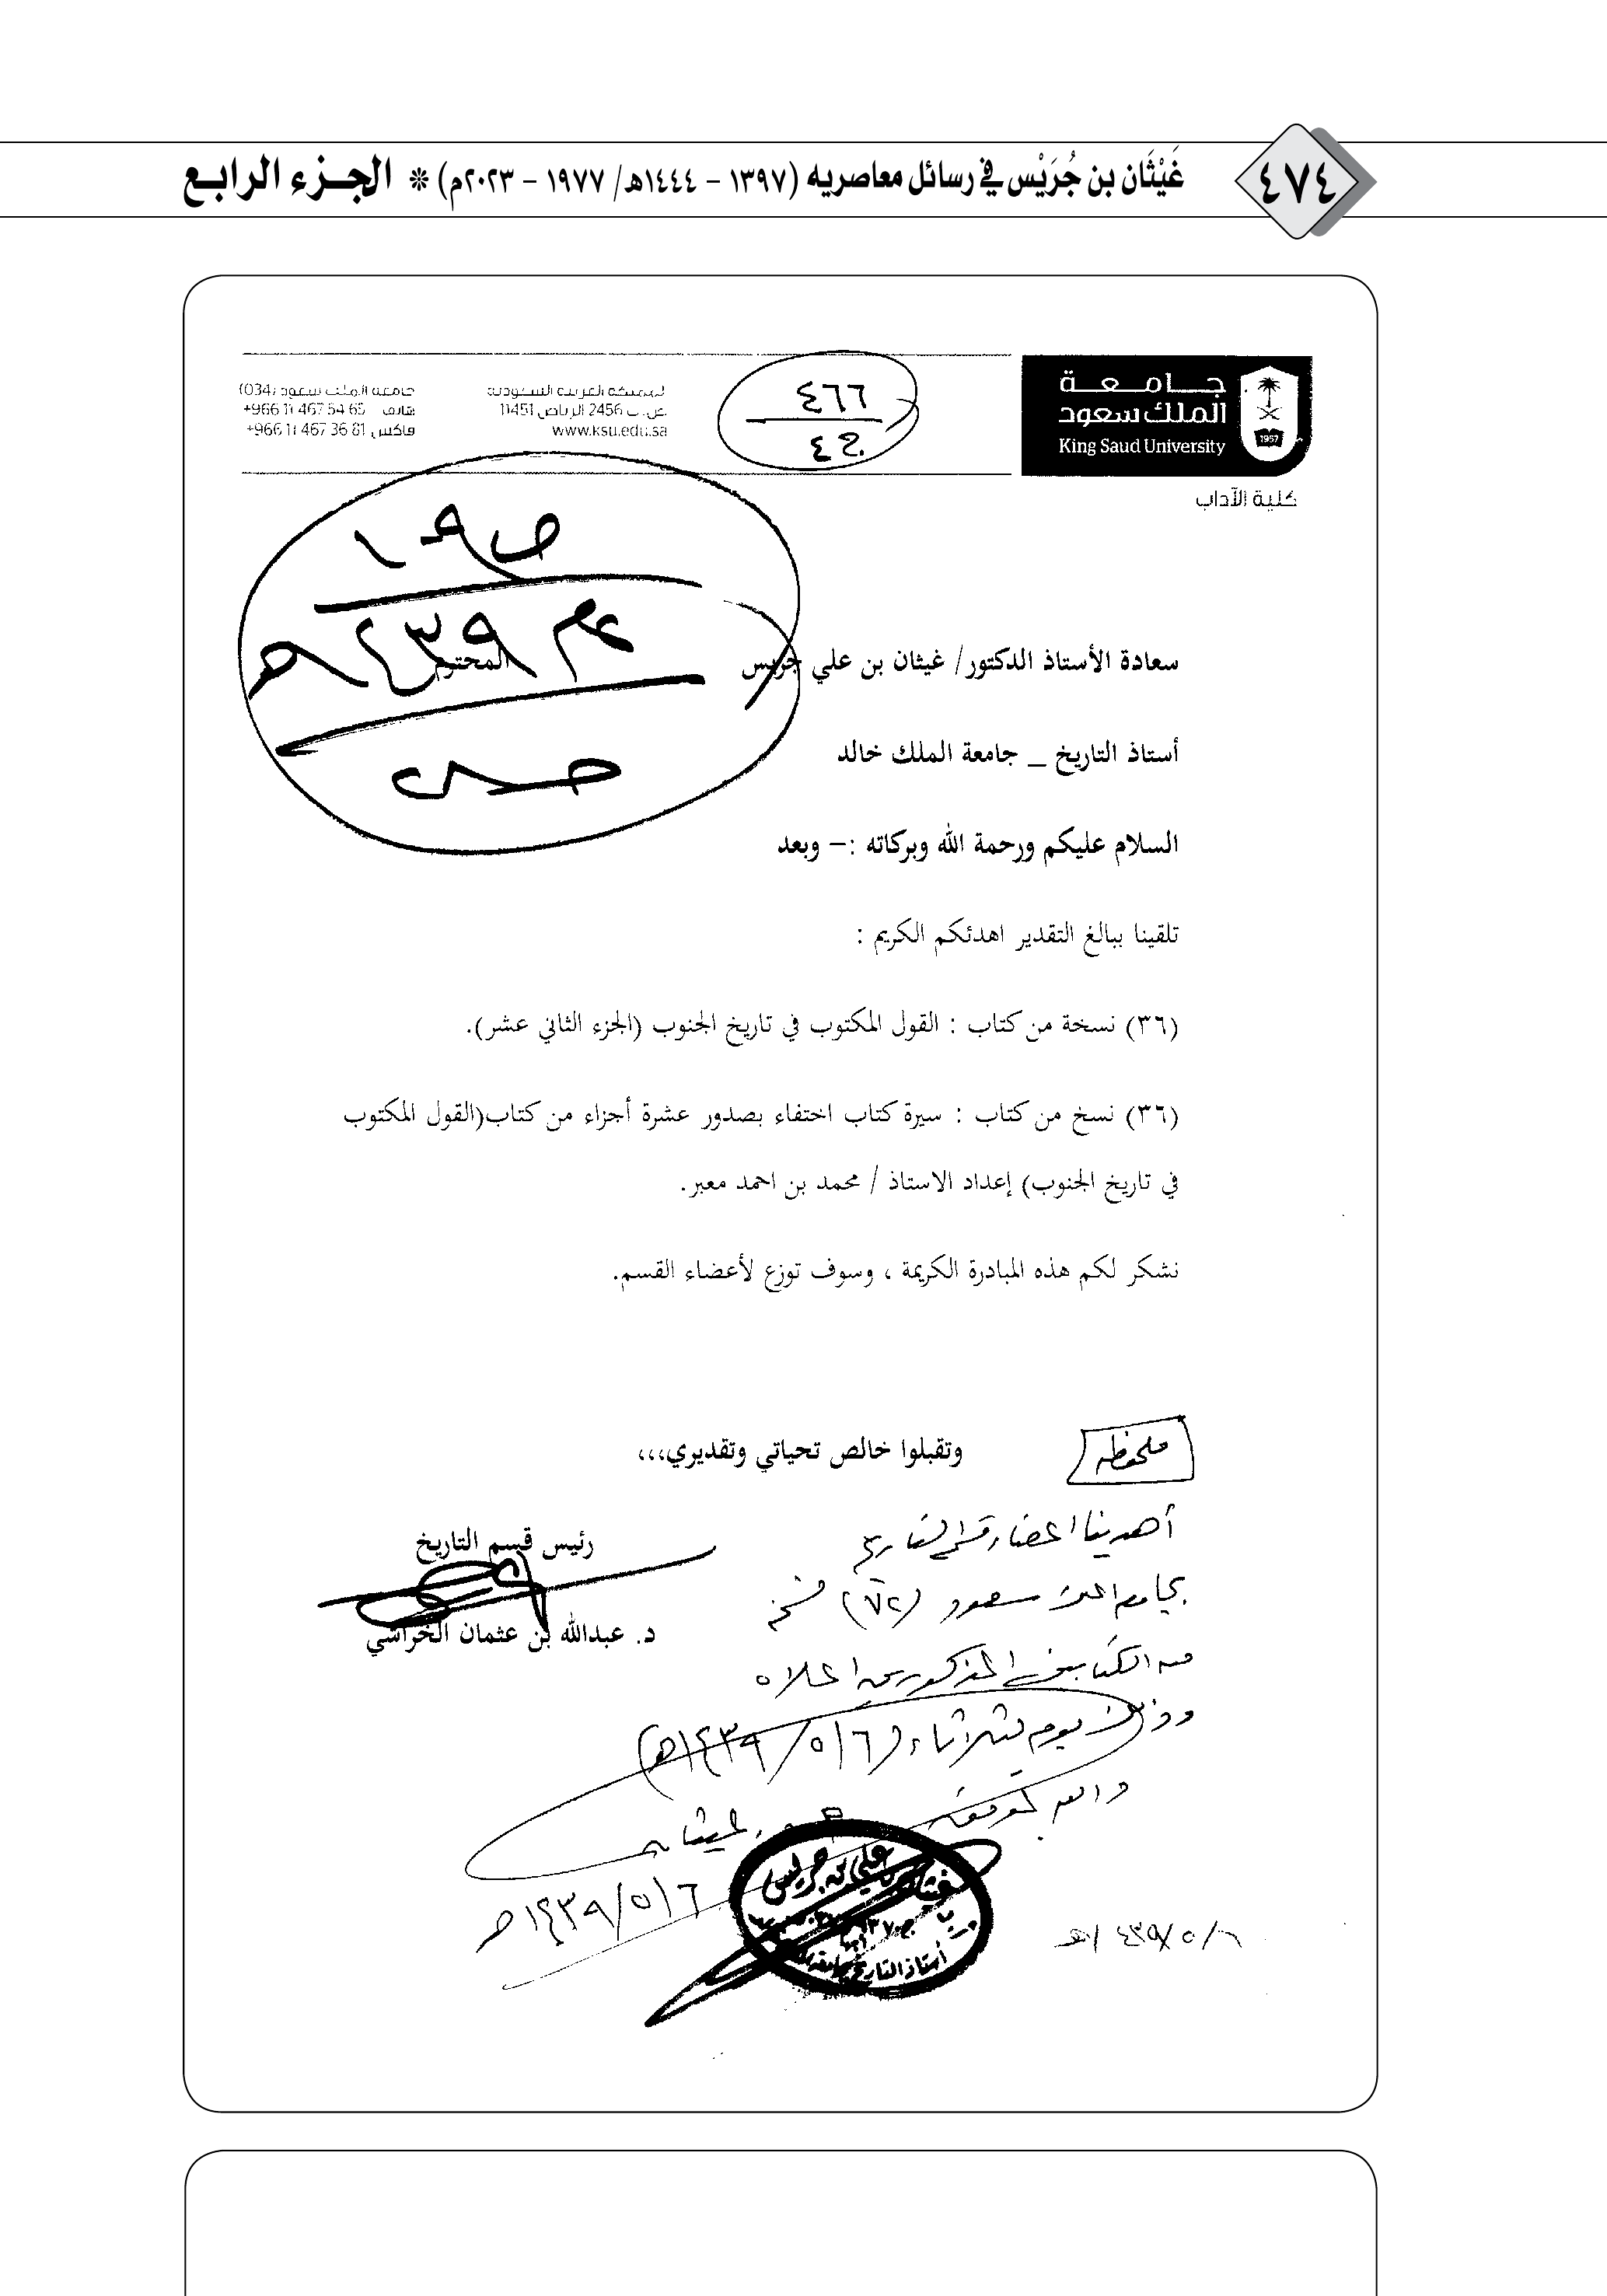 ٤٧٤
غَيْثَان بن جُرَيْس في رسائل معاصريه (١٣٩٧ - ١٤٤٤هـ/ ١٩٧٧ - ٢٠٢٣م) * الجزء الرابع
جامعة
الملك سعود
King Saud University
1957
كلية الآداب
٤٦٦
ج٤
المملكة العربية السعودية
ص.ب 2456 الرياض 11451
www.ksu.edu.sa
جامعة الملك سعود (034)
هاتف +966 11 467 54 65
فاكس +966 11 467 36 81
سعادة الأستاذ الدكتور/ غيثان بن علي جريس المحترم
أستاذ التاريخ _ جامعة الملك خالد
السلام عليكم ورحمة الله وبركاته :- وبعد
تلقينا ببالغ التقدير اهدئكم الكريم :
(٣٦) نسخة من كتاب : القول المكتوب في تاريخ الجنوب (الجزء الثاني عشر).
(٣٦) نسخ من كتاب : سيرة كتاب احتفاء بصدور عشرة أجزاء من كتاب(القول المكتوب
في تاريخ الجنوب) إعداد الاستاذ / محمد بن احمد معبر.
نشكر لكم هذه المبادرة الكريمة ، وسوف توزع لأعضاء القسم.
وتقبلوا خالص تحياتي وتقديري،،،
رئيس قسم التاريخ
د. عبدالله بن عثمان الخراشي
ملحوظه
أهدينا اعضاء قسم التاريخ
بجامعة الملك سعود (٧٢) نسخة
من الكتابين المذكورين اعلاه
وذلك يوم الثلاثاء (١٤٣٩/٥/٦هـ)
والله الموفق
غيثان
١٤٣٩/٥/٦هـ
علي بن جريس
أستاذ التاريخ
١٤٣٩/٥/٦هـ